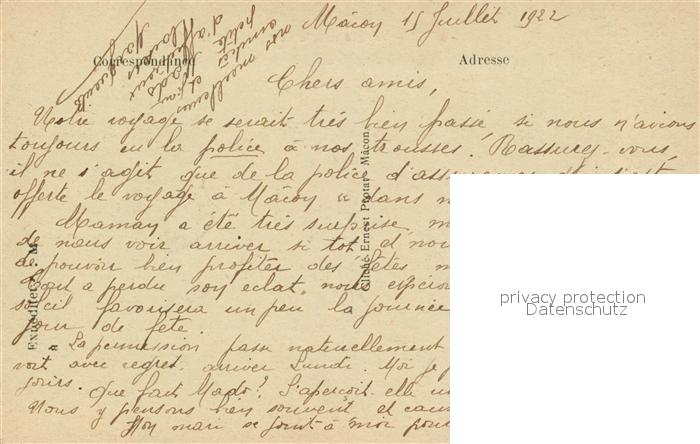 Mâcon 15 Juillet 1922
Correspondance
Adresse
Chers amis,
Notre voyage se serait très bien passé si nous n'avions
toujours eu la police à nos trousses. Rassurez-vous,
il ne s'agit que de la police d'assurances
offerte le voyage à Mâcon "dans
Maman a été très surprise
de nous voir arriver si tôt et
de pouvoir bien profiter des fêtes
a perdu son éclat, nous
soleil favorisera un peu la journée
jour de fête.
La permission passe naturellement
voit avec regret arriver Lundi. Moi je
jours. Que fait Mado? S'aperçoit-elle
Nous y pensons bien souvent et
Mon mari se joint à moi pour
nos meilleures
amitiés et
petite
d'a
Mado
Marguerite
Cliché Ernest Protat, Mâcon
Expéditeur : M.
à
privacy protection
Datenschutz